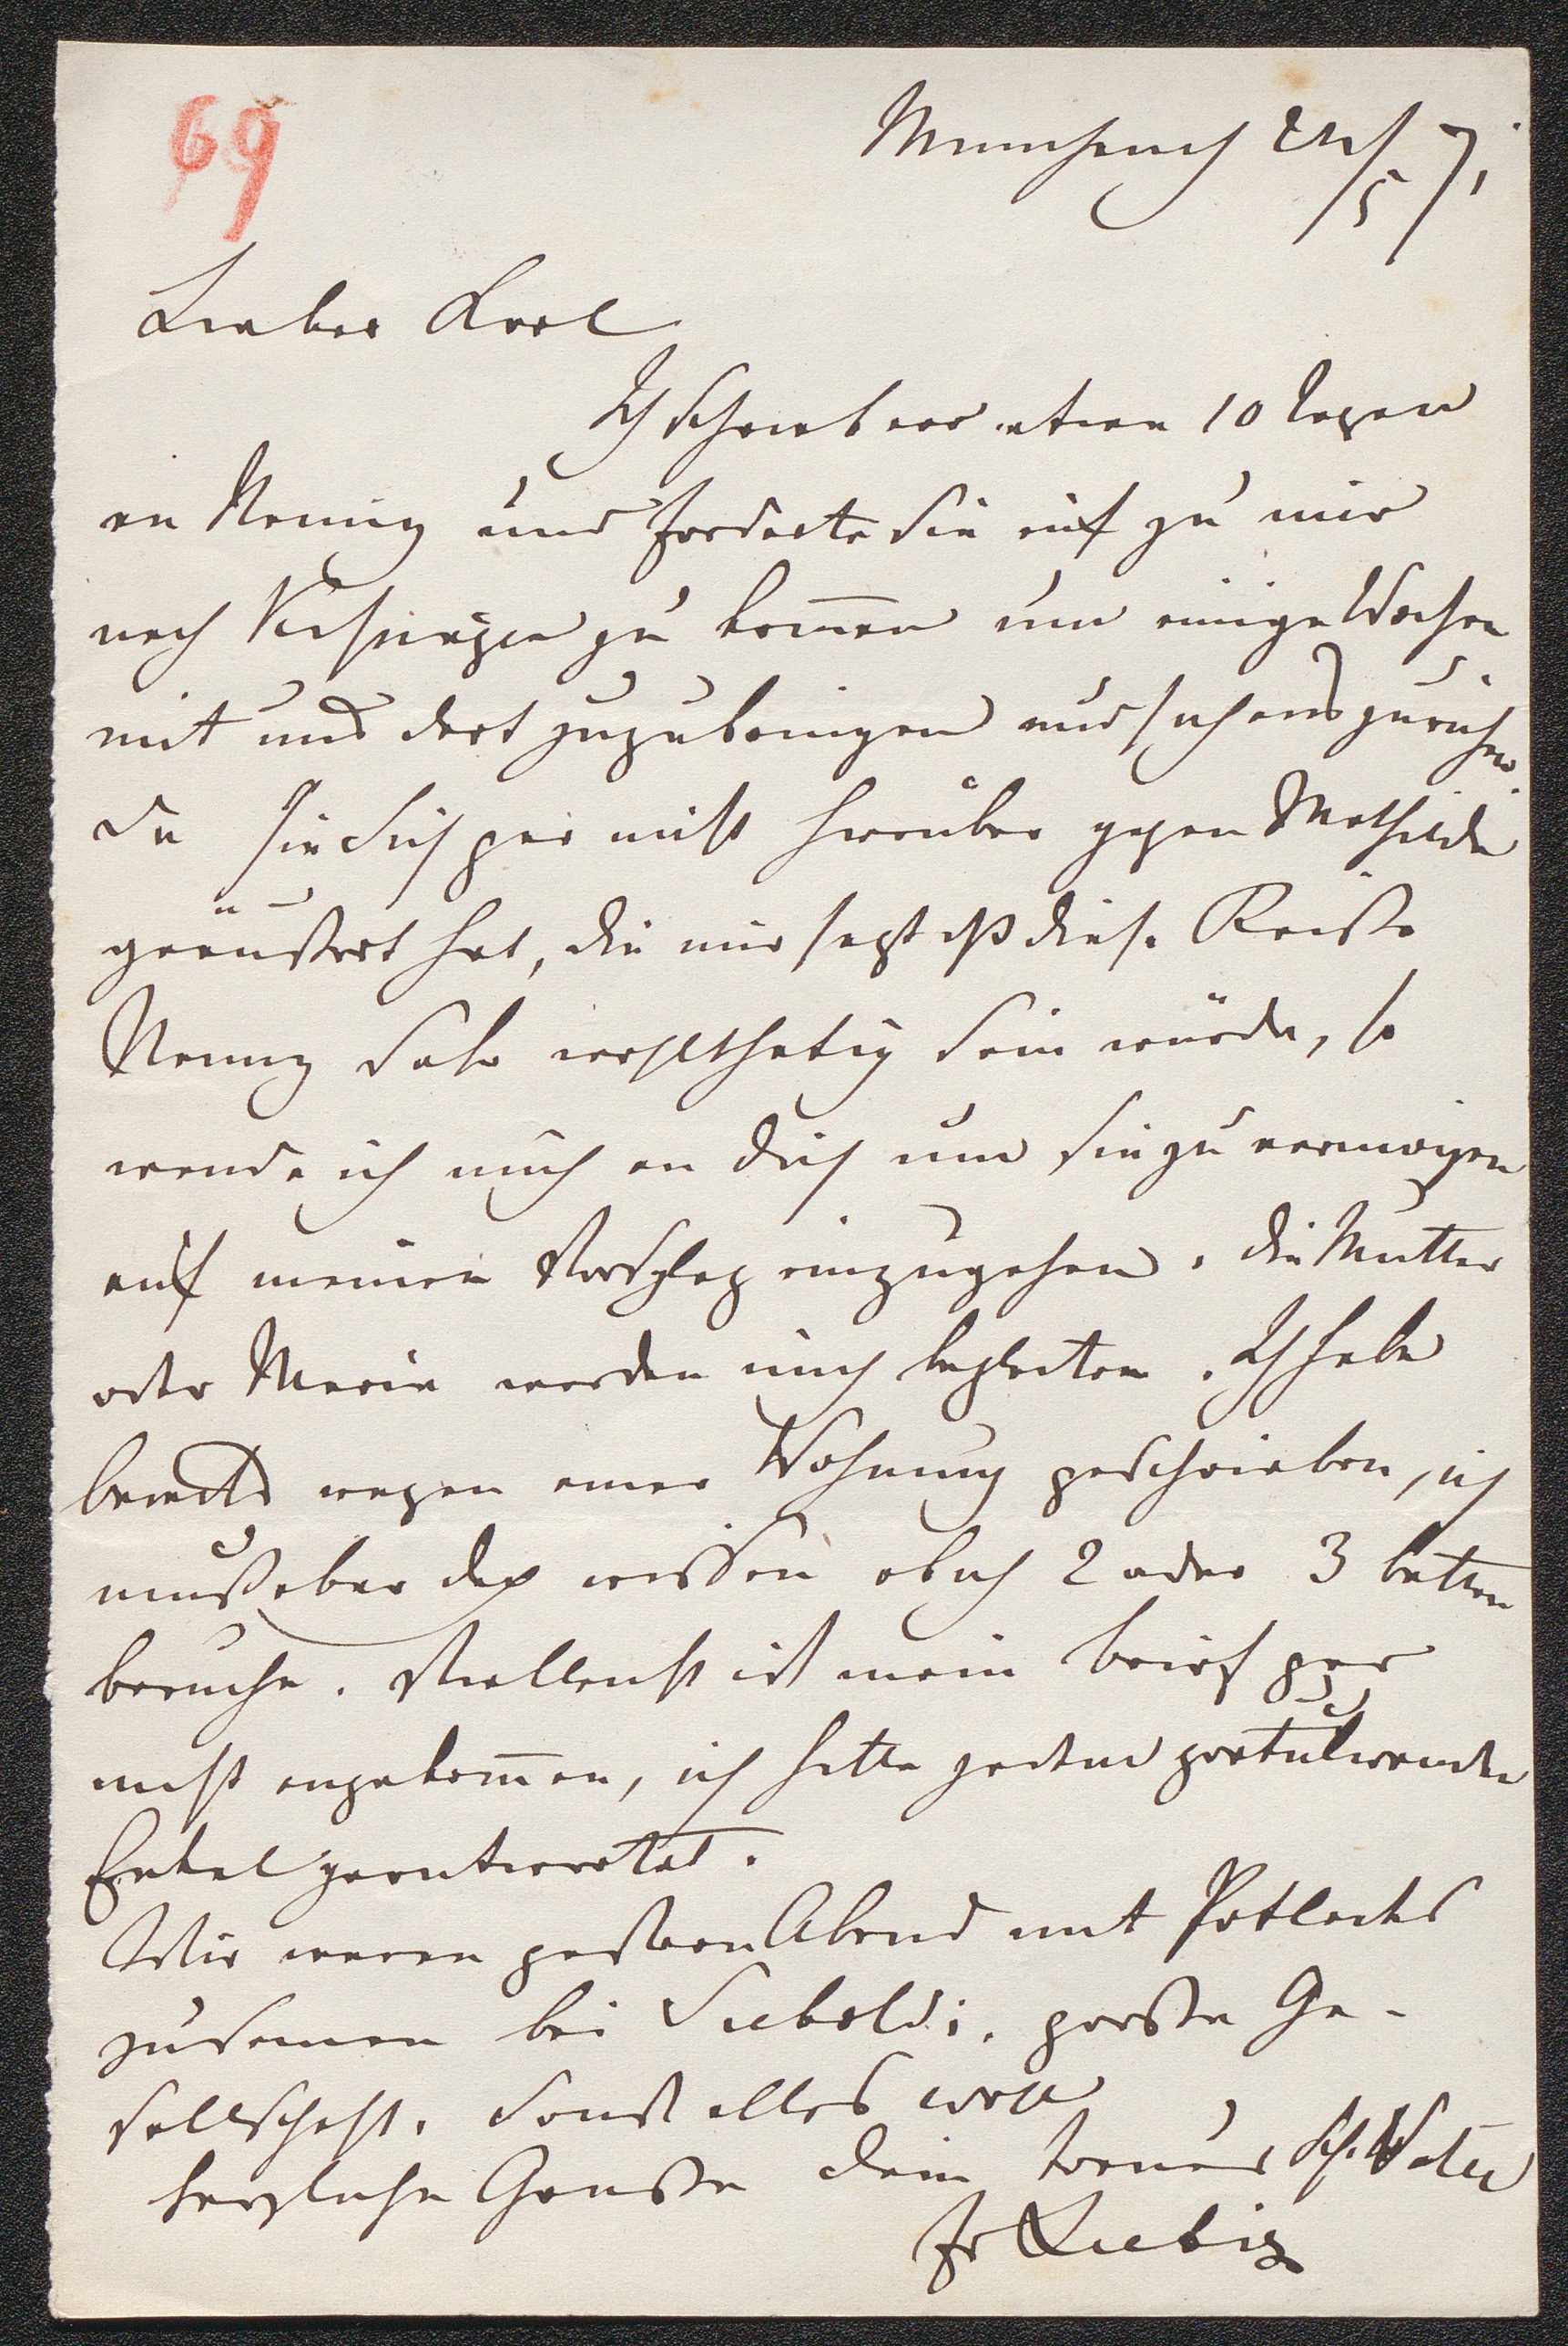 69
München 22/5 71.
Lieber Karl
Ich schrieb vor etwa 10 Tagen
an Nanny und forderte sie auf zu mir
nach Kissingen zu kom̄en um einige Wochen
mit uns dort zuzubringen und sich auszuruhen.
Da sie sich gar nicht hierüber gegen Mathilde
geäußert hat, die mir sagt dß diese Reise
Nanny sehr wohlthätig sein würde, so
wende ich mich an Dich um sie zu vermögen
auf meinen Vorschlag einzugehen. Die Mutter
oder Marie werden mich begleiten. Ich habe
bereits wegen einer Wohnung geschrieben, ich
muß aber doch wissen ob ich 2 oder 3 betten
brauche. Vielleicht ist mein brief gar
nicht angekom̄en, ich hätte gratulirenden
Enkel geantwortet.
Wir waren gestern Abend mit
zusamen bei Siebold; große Ge-
sellschaft. Sonst alles wohl
herzliche Grüße Dein treuer Sch. Vater
Jr Liebig